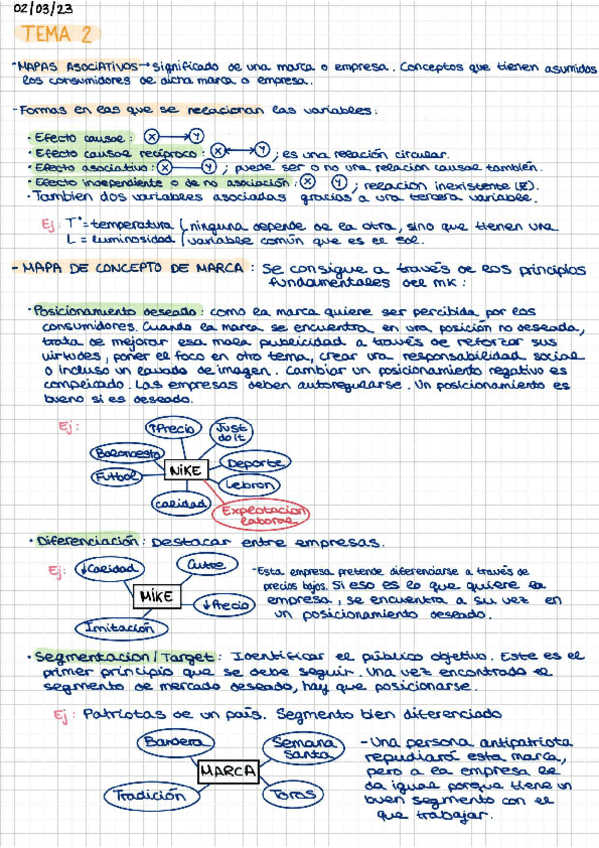 02/03/23
TEMA 2
- MAPAS ASOCIATIVOS → significado de una marca o empresa. Conceptos que tienen asumidos
los consumidores de dicha marca o empresa.
- Formas en las que se relacionan las variables:
· Efecto causal: X → Y
· Efecto causal recíproco: X ↔ Y; es una relación circular.
· Efecto asociativo: X — Y; puede ser o no una relación causal también.
· Efecto independiente o de no asociación: X Y; relación inexistente (∄).
· También dos variables asociadas gracias a una tercera variable.
Ej: Tª = temperatura ninguna depende de la otra, sino que tienen una
L = luminosidad variable común que es el sol.
- MAPA DE CONCEPTO DE MARCA: Se consigue a través de los principios
fundamentales del mk:
· Posicionamiento deseado: como la marca quiere ser percibida por los
consumidores. Cuando la marca se encuentra en una posición no deseada,
trata de mejorar esa mala publicidad a través de reforzar sus
virtudes, poner el foco en otro tema, crear una responsabilidad social
o incluso un lavado de imagen. Cambiar un posicionamiento negativo es
complicado. Las empresas deben autoregularse. Un posicionamiento es
bueno si es deseado.
Ej:
↑Precio
Just do it
Baloncesto
Deporte
NIKE
Futbol
Lebron
calidad
Explotacion laboral
· Diferenciación: Destacar entre empresas.
Ej:
↓Calidad
Cutre
MIKE
↓Precio
Imitación
- Esta empresa pretende diferenciarse a través de
precios bajos. Si eso es lo que quiere la
empresa, se encuentra a su vez en
un posicionamiento deseado.
· Segmentacion/Target: Identificar el público objetivo. Este es el
primer principio que se debe seguir. Una vez encontrado el
segmento de mercado deseado, hay que posicionarse.
Ej: Patriotas de un país. Segmento bien diferenciado
Bandera
Semana Santa
MARCA
Tradición
Toros
- Una persona antipatriota
repudiará esta marca,
pero a la empresa le
da igual porque tiene un
buen segmento con el
que trabajar.